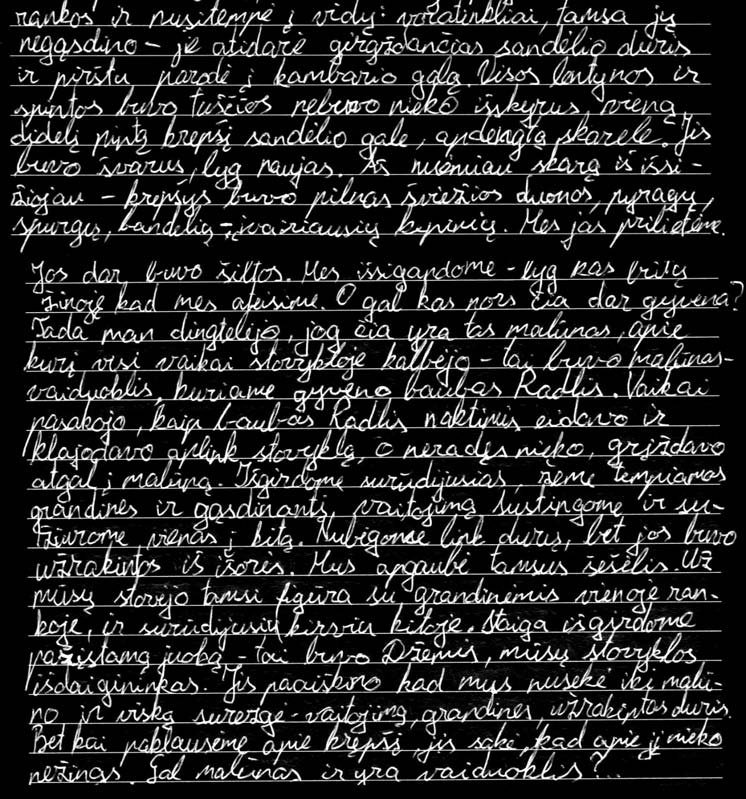 rankos ir nusitempė į vidų: voratinkliai, tamsa jų
negąsdino – jie atidarė girgždančias sandėlio duris
ir pirštu parodė į kambario galą. Visos lentynos ir
spintos buvo tuščios nebuvo nieko išskyrus vieną
didelį pintą krepšį sandėlio gale, apdengtą skarele. Jis
buvo švarus, lyg naujas. Aš nuėmiau skarą iš išsi-
žiojau – krepšys buvo pilnas šviežios duonos, pyragų,
spurgų, bandelių – įvairiausių kepinių. Mes jas prilietėme.
Jos dar buvo šiltos. Mes išsigandome – lyg kas būtų
žinoję kad mes ateisime. O gal kas nors čia dar gyvena?
Tada man dingtelėjo, jog čia yra tas malūnas, apie
kurį visi vaikai stovykloje kalbėjo – tai buvo malūnas-
vaiduoklis, kuriame gyveno baubas Radlis. Vaikai
pasakojo, kaip baubas Radlis naktimis eidavo ir
klajodavo aplink stovyklą, o neradęs nieko, grįždavo
atgal į malūną. Išgirdome surūdijusias, žeme tempiamas
grandines ir gąsdinantį vaitojimą sustingome ir su-
žiurome vienas į kitą. Nubėgome link durų, bet jos buvo
užrakintos iš išorės. Mus apgaubė tamsus šešėlis. Už
mūsų stovėjo tamsi figūra su grandinėmis vienoje ran-
koje, ir surūdijusiu kirviu kitoje. Staiga išgirdome
pažįstamą juoką – tai buvo Džemis, mūsų stovyklos
išdaigininkas. Jis paaiškino kad mus nusekė iki malū-
no ir viską surežgė – vaitojimą, grandines, užrakintas duris.
Bet kai paklausėme apie krepšį, jis sakė, kad apie jį nieko
nežinąs. Gal malūnas ir yra vaiduoklis?...